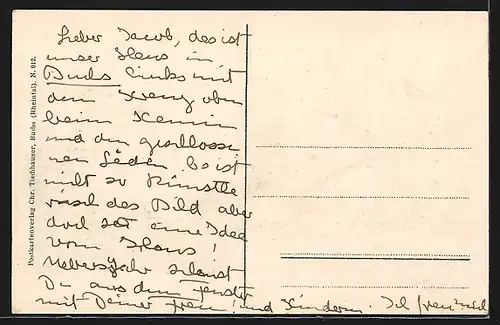 Lieber Jacob, das ist
unser Haus in
Buchs links mit
dem Kreuz oben
beim Kamin
und den geschlosse
nen Läden. Es ist
nicht so künstle
risch das Bild aber
doch hat eine Idee
vom Haus!
Übers Jahr schaust
Du aus dem Fenster
mit Deiner Frau! und Kindern. Ich freu mich
Postkartenverlag Chr. Tischhauser, Buchs (Rheintal). N. 912.